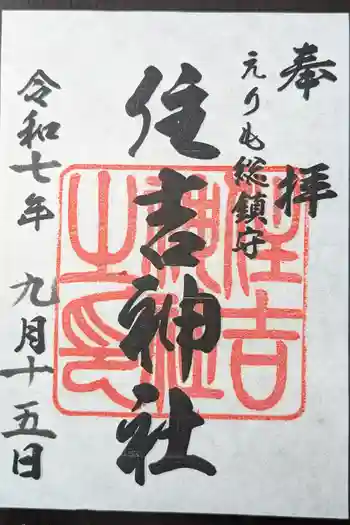 奉拝
えりも総鎮守
住吉神社
令和七年 九月十五日
住吉
神社
之印